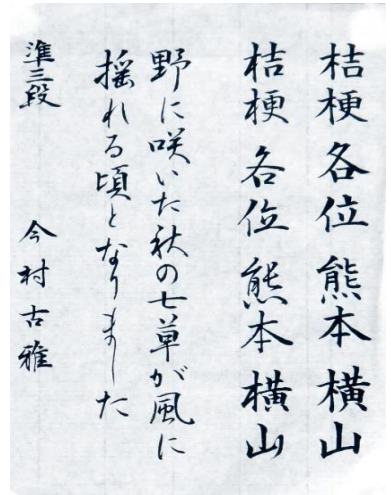 桔梗各位熊本横山
桔梗各位熊本横山
野に咲いた秋の七草が風に
揺れる頃となりました
準三段 今村古雅